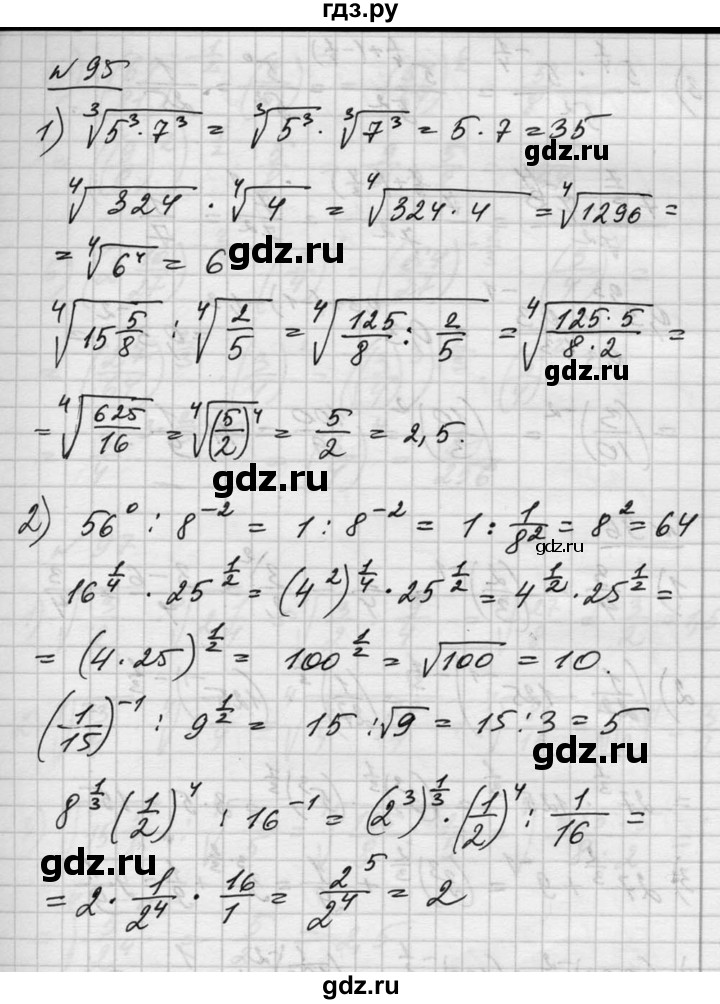 гдз.ру
№ 95
1) ∛(5³·7³) = ∛(5³) · ∛(7³) = 5·7 = 35
gdz.ru
⁴√324 · ⁴√4 = ⁴√(324·4) = ⁴√1296 =
= ⁴√(6⁴) = 6
gdz.ru
gdz.ru
⁴√(15 5/8) : ⁴√(2/5) = ⁴√(125/8 : 2/5) = ⁴√((125·5)/(8·2)) =
gdz.ru
= ⁴√(625/16) = ⁴√((5/2)⁴) = 5/2 = 2,5.
gdz.ru
2) 56⁰ : 8⁻² = 1 : 8⁻² = 1 : 1/8² = 8² = 64
gdz.ru
16^(1/4) · 25^(1/2) = (4²)^(1/4) · 25^(1/2) = 4^(1/2) · 25^(1/2) =
= (4·25)^(1/2) = 100^(1/2) = √100 = 10.
gdz.ru
(1/15)⁻¹ : 9^(1/2) = 15 : √9 = 15 : 3 = 5
gdz.ru
8^(1/3) (1/2)⁴ : 16⁻¹ = (2³)^(1/3) · (1/2)⁴ : 1/16 =
gdz.ru
= 2 · 1/2⁴ · 16/1 = 2⁵/2⁴ = 2
gdz.ru
gdz.ru